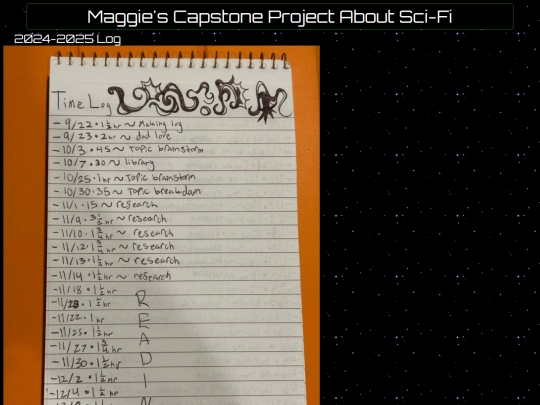 Maggie's Capstone Project About Sci-Fi
2024-2025 Log
Time Log
- 9/22 • 1 1/2 hr ~ Making log
- 9/23 • 2 hr ~ dad lore
- 10/3 • 45 ~ topic brainstorm
- 10/7 • 30 ~ library
- 10/25 • 1 hr ~ topic brainstorm
- 10/30 • 35 ~ topic breakdown
- 11/1 • 15 ~ research
- 11/9 • 3 1/2 hr ~ research
- 11/10 • 1 3/4 hr ~ research
- 11/12 • 1 3/4 hr ~ research
- 11/13 • 1 1/2 hr ~ research
- 11/14 • 1 1/2 hr ~ research
- 11/18 • 1 1/2 hr R
- 11/23 • 1 1/2 hr
- 11/22 • 1 hr E
- 11/25 • 1 1/2 hr A
- 11/27 • 1 3/4 hr
- 11/30 • 1 1/2 hr D
- 12/2 • 1 1/2 hr I
- 12/4 • 1 1/2 hr
N